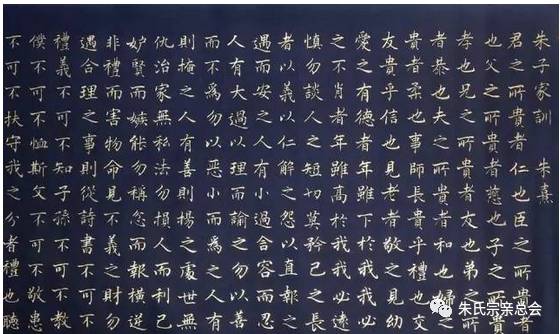 朱子家訓 朱熹
君之所貴者仁也臣之所貴者
也父之所貴者慈也子之所貴
孝也兄之所貴者友也弟之所
貴者恭也夫之所貴者和也婦之
貴者柔也事師長貴乎禮也交
友貴乎信也見老者敬之見幼
愛之有德者年雖下於我我必
之不肖者年雖高於我我必遠
慎勿談人之短切莫矜己之長
者以義解之怨者以直報之
遇而安之人有小過含容而忍
人有大過以理而諭之勿以善
而不為勿以惡小而為之人有
則掩之人有善則揚之處世無
仇治家無私法勿損人而利己
妒賢而嫉能勿稱忿而報橫逆
非禮而害物命見不義之財勿
遇合理之事則從詩書不可不
禮義不可不知子孫不可不教
僕不可不恤斯文不可不敬患
不可不扶守我之分者禮也聽
朱氏宗亲总会